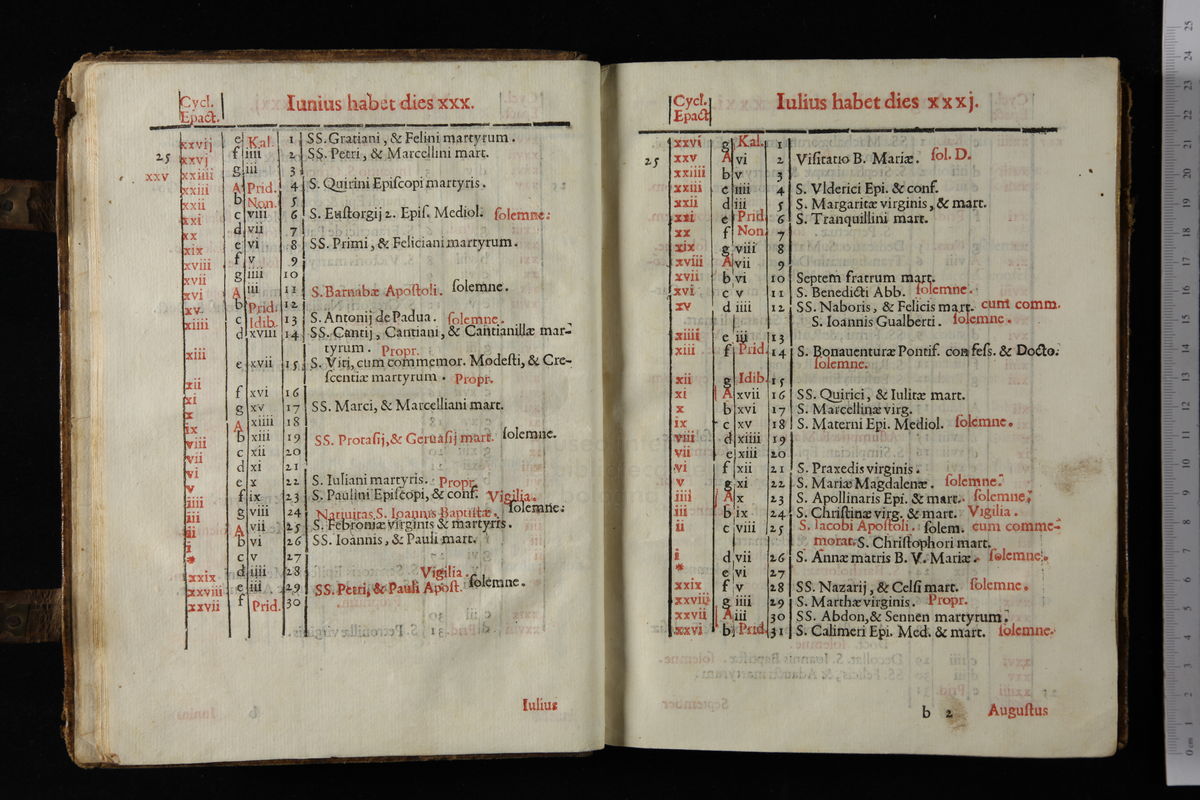 Cycl.
Epact.
Iunius habet dies xxx.
xxvij e Kal. 1 SS. Gratiani, & Felini martyrum.
25 xxvj f iiii 2 SS. Petri, & Marcellini mart.
xxv xxiiii g iii 3
xxiii A Prid. 4 S. Quirini Epiſcopi martyris.
xxii b Non. 5
xxi c viii 6 S. Euſtorgij 2. Epiſ. Mediol. ſolemne.
xx d vii 7
xix e vi 8 SS. Primi, & Feliciani martyrum.
xviii f v 9
xvii g iiii 10
xvi A iii 11 S. Barnabæ Apoſtoli. ſolemne.
xv b Prid. 12
xiiii c Idib. 13 S. Antonij de Padua. ſolemne.
d xviii 14 SS. Cantij, Cantiani, & Cantianillæ mar-
tyrum. Propr.
xiii e xvii 15 S. Viti, cum commemor. Modeſti, & Cre-
ſcentiæ martyrum. Propr.
xii f xvi 16
xi g xv 17 SS. Marci, & Marcelliani mart.
x A xiiii 18
ix b xiii 19 SS. Protaſij, & Geruaſij mart. ſolemne.
viii c xii 20
vii d xi 21
vi e x 22 S. Iuliani martyris. Propr.
v f ix 23 S. Paulini Epiſcopi, & conf. Vigilia.
iiii g viii 24 Natiuitas. S. Ioannis Baptiſtæ. ſolemne.
iii A vii 25 S. Febroniæ virginis & martyris.
ii b vi 26 SS. Ioannis, & Pauli mart.
i c v 27
* d iiii 28 Vigilia
xxix e iii 29 SS. Petri, & Pauli Apoſt. ſolemne.
xxviii f Prid. 30
xxvii
Iulius
Cycl.
Epact.
Iulius habet dies xxxj.
xxvi g Kal. 1
25 xxv A vi 2 Viſitatio B. Mariæ. ſol. D.
xxiiii b v 3
xxiii c iiii 4 S. Vlderici Epi. & conf.
xxii d iii 5 S. Margaritæ virginis, & mart.
xxi e Prid. 6 S. Tranquillini mart.
xx f Non. 7
xix g viii 8
xviii A vii 9
xvii b vi 10 Septem fratrum mart.
xvi c v 11 S. Benedicti Abb. ſolemne.
xv d iiii 12 SS. Naboris, & Felicis mart. cum comm.
S. Ioannis Gualberti. ſolemne.
xiiii e iii 13
xiii f Prid. 14 S. Bonauenturæ Pontif. confeſs. & Docto.
ſolemne.
xii g Idib. 15
xi A xvii 16 SS. Quirici, & Iulitæ mart.
x b xvi 17 S. Marcellinæ virg.
ix c xv 18 S. Materni Epi. Mediol. ſolemne.
viii d xiiii 19
vii e xiii 20
vi f xii 21 S. Praxedis virginis.
v g xi 22 S. Mariæ Magdalenæ. ſolemne.
iiii A x 23 S. Apollinaris Epi. & mart. ſolemne.
iii b ix 24 S. Chriſtinæ virg. & mart. Vigilia.
ii c viii 25 S. Iacobi Apoſtoli. ſolem. cum comme-
morat. S. Chriſtophori mart.
i d vii 26 S. Annæ matris B. V. Mariæ. ſolemne.
* e vi 27
xxix f v 28 SS. Nazarij, & Celſi mart. ſolemne.
xxviii g iiii 29 S. Marthæ virginis. Propr.
xxvii A iii 30 SS. Abdon, & Sennen martyrum.
xxvi b Prid. 31 S. Calimeri Epi. Med. & mart. ſolemne.
b 2 Auguſtus